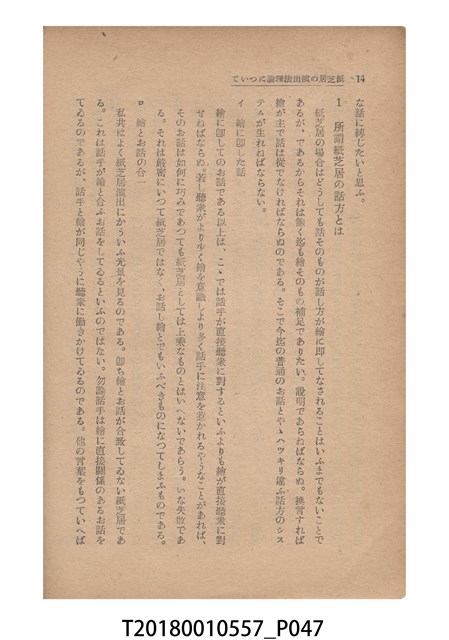 紙芝居の演出法理論について・14
な話に轉じたいと思ふ。
1　所謂紙芝居の話方とは
紙芝居の場合はどうしても話そのものが話し方が繪に即してなされることはいふまでもないことで
あるが、であるからそれは飽く迄も繪そのもの補足でありたい。說明であらねばならぬ。換言すれば
繪が主で話は從でなければならぬのである。そこで今迄の普通のお話とやゝハツキリ違ふ話方のシス
テムが生れねばならない。
イ　繪に即した話
繪に即してのお話である以上は、こゝでは話手が直接聽衆に對するといふよりも繪が直接聽衆に對
せねばならぬ。若し聽衆がより少く繪を意識しより多く話手に注意を惹かれるやうなことがあれば、
そのお話は如何に巧みであつても紙芝居としては上乘なものとはいへないであらう。いな失敗であ
る。それは嚴密にいつて紙芝居ではなく、お話し繪とでもいふべきものになつてしまふものである。
ロ　繪とお話の合一
私共はよく紙芝居演出にかういふ光景を見るのである。卽ち繪とお話が合致してゐない紙芝居であ
る。これは話手が繪と合ふお話をしてゐるといふのではない。勿論話手は繪に直接關係のあるお話を
てゐるのであるが、話手と繪が同じやうに聽衆に働きかけてゐるのである。他の言葉をもつていへば
T20180010557_P047